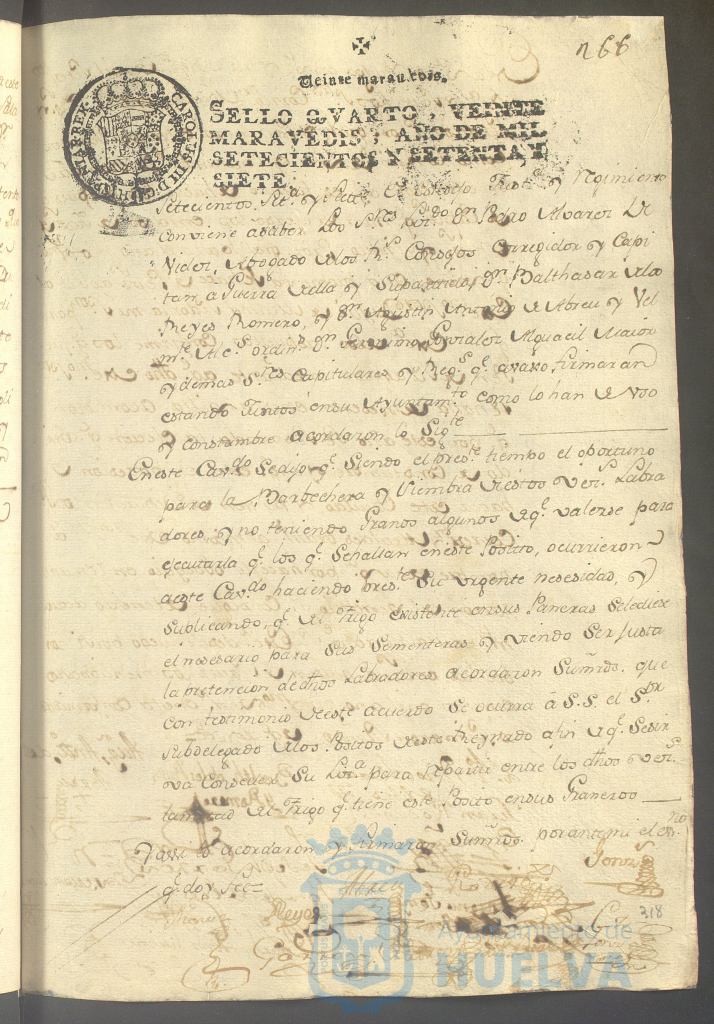 266
Veinte maravedis.
CAROLUS III D.G. HISPANIAR REX
SELLO QVARTO, VEINTE
MARAVEDIS, AÑO DE MIL
SETECIENTOS Y SETENTA, Y
SIETE.
setecientos set.ª y siete El Consejo Just.ª y Regimiento
conviene asaber Los S.res Liz.do D.n Pedro Alvarez De
Vides, Abogado de los R.s Consejos Corregidor y Capi
tan a Guerra della y su partido, D.n Balthasar de los
Reyes Romero, y D.n Agustin Antonio de Abreu y Vel
Alc.s ordin.s D.n Geronimo Gonzalez Alguacil Maior
y demas S.res Capitulares y Reg.s q.e avaxo firmaran
estando Juntos en su Ayuntam.to como lo han de vso
y constumbre acordaron lo Sig.te
En este Cav.do Se dijo q.e Siendo el pres.te tiempo el oportuno
para la Barbechera y Siembra de estos vez.s Labra
dores, y no teniendo Granos algunos de q.e valerse para
ejecutarla q.e los q.e Se hallan en este Posito, ocurrieron
a este Cav.do haciendo pres.te Su vrgente nesesidad, y
Suplicando, q.e del trigo existente en sus Paneras Se le diese
el nesesario para Sus Sementeras y viendo Ser Justa
la pretencion de dhos Labradores acordaron Sumrds. que
con testimonio de este acuerdo Se ocurra â S.S. el S.or
Subdelegado de los Positos de este Reynado afin de q.e Se sir
va conseder Su Liz.ª para Repartir entre los dhos vez.s
la mitad del trigo q.e tiene este Posito en sus Graneros
Y assi lo acordaron y firmaron Sumrds. por ante mi el ess.no
q.e doy fee=
Reyes
Garcia
318
Ayuntamiento de
HUELVA